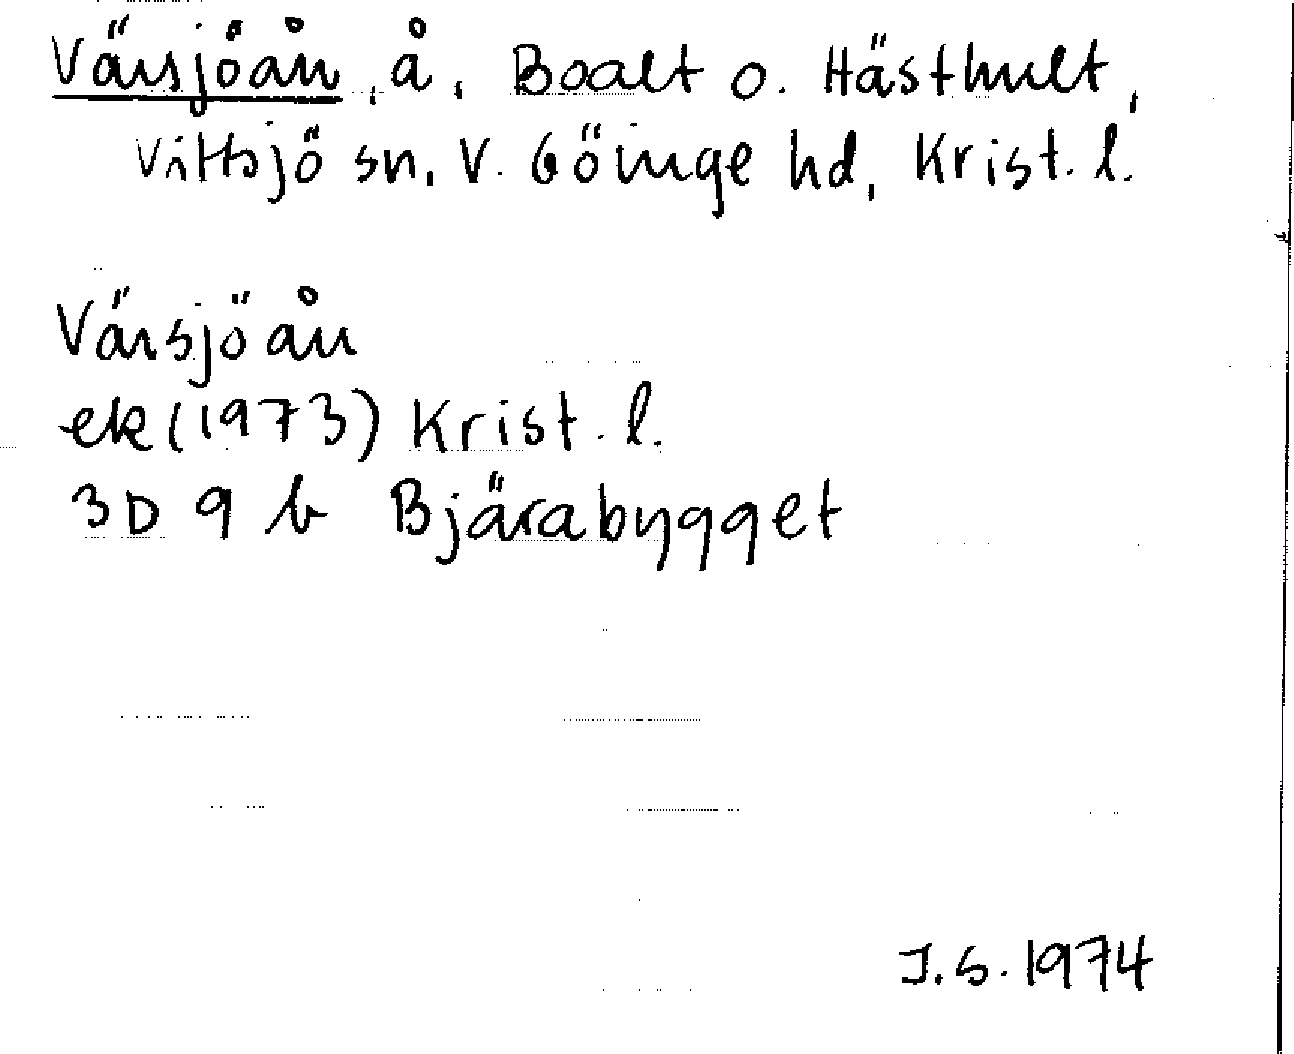 Värsjöån, å, Boalt o. Hästhult,
Vittsjö sn, V. Göinge hd, Krist. l.
Värsjöån
ek (1973) Krist. l.
3D 9 b Bjärabygget
J.S. 1974